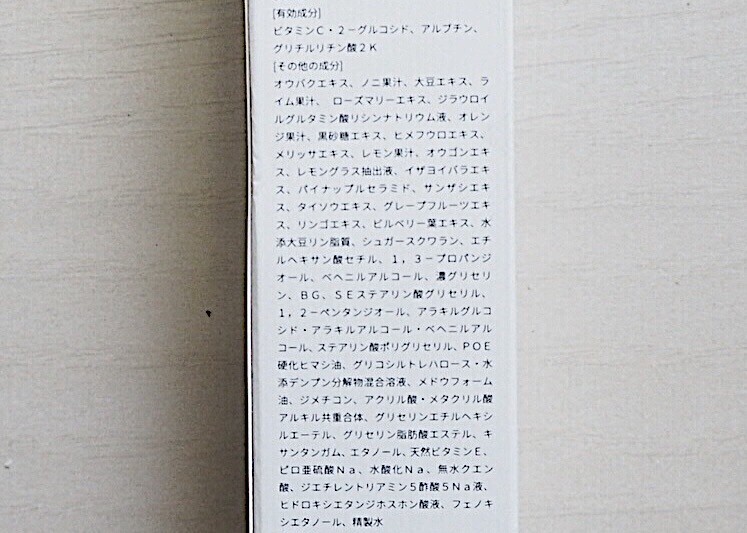 [有効成分]
ビタミンC・2－グルコシド、アルブチン、
グリチルリチン酸2K
[その他の成分]
オウバクエキス、ノニ果汁、大豆エキス、ラ
イム果汁、 ローズマリーエキス、ジラウロイ
ルグルタミン酸リシンナトリウム液、オレン
ジ果汁、黒砂糖エキス、ヒメフウロエキス、
メリッサエキス、レモン果汁、オウゴンエキ
ス、レモングラス抽出液、イザヨイバラエキ
ス、パイナップルセラミド、サンザシエキ
ス、タイソウエキス、グレープフルーツエキ
ス、リンゴエキス、ビルベリー葉エキス、水
添大豆リン脂質、シュガースクワラン、エチ
ルヘキサン酸セチル、1，3－プロパンジ
オール、ベヘニルアルコール、濃グリセリ
ン、BG、SEステアリン酸グリセリル、
1，2－ペンタンジオール、アラキルグルコ
シド・アラキルアルコール・ベヘニルアル
コール、ステアリン酸ポリグリセリル、POE
硬化ヒマシ油、グリコシルトレハロース・水
添デンプン分解物混合溶液、メドウフォーム
油、ジメチコン、アクリル酸・メタクリル酸
アルキル共重合体、グリセリンエチルヘキシ
ルエーテル、グリセリン脂肪酸エステル、キ
サンタンガム、エタノール、天然ビタミンE、
ピロ亜硫酸Na、水酸化Na、無水クエン
酸、ジエチレントリアミン5酢酸5Na液、
ヒドロキシエタンジホスホン酸液、フェノキ
シエタノール、精製水